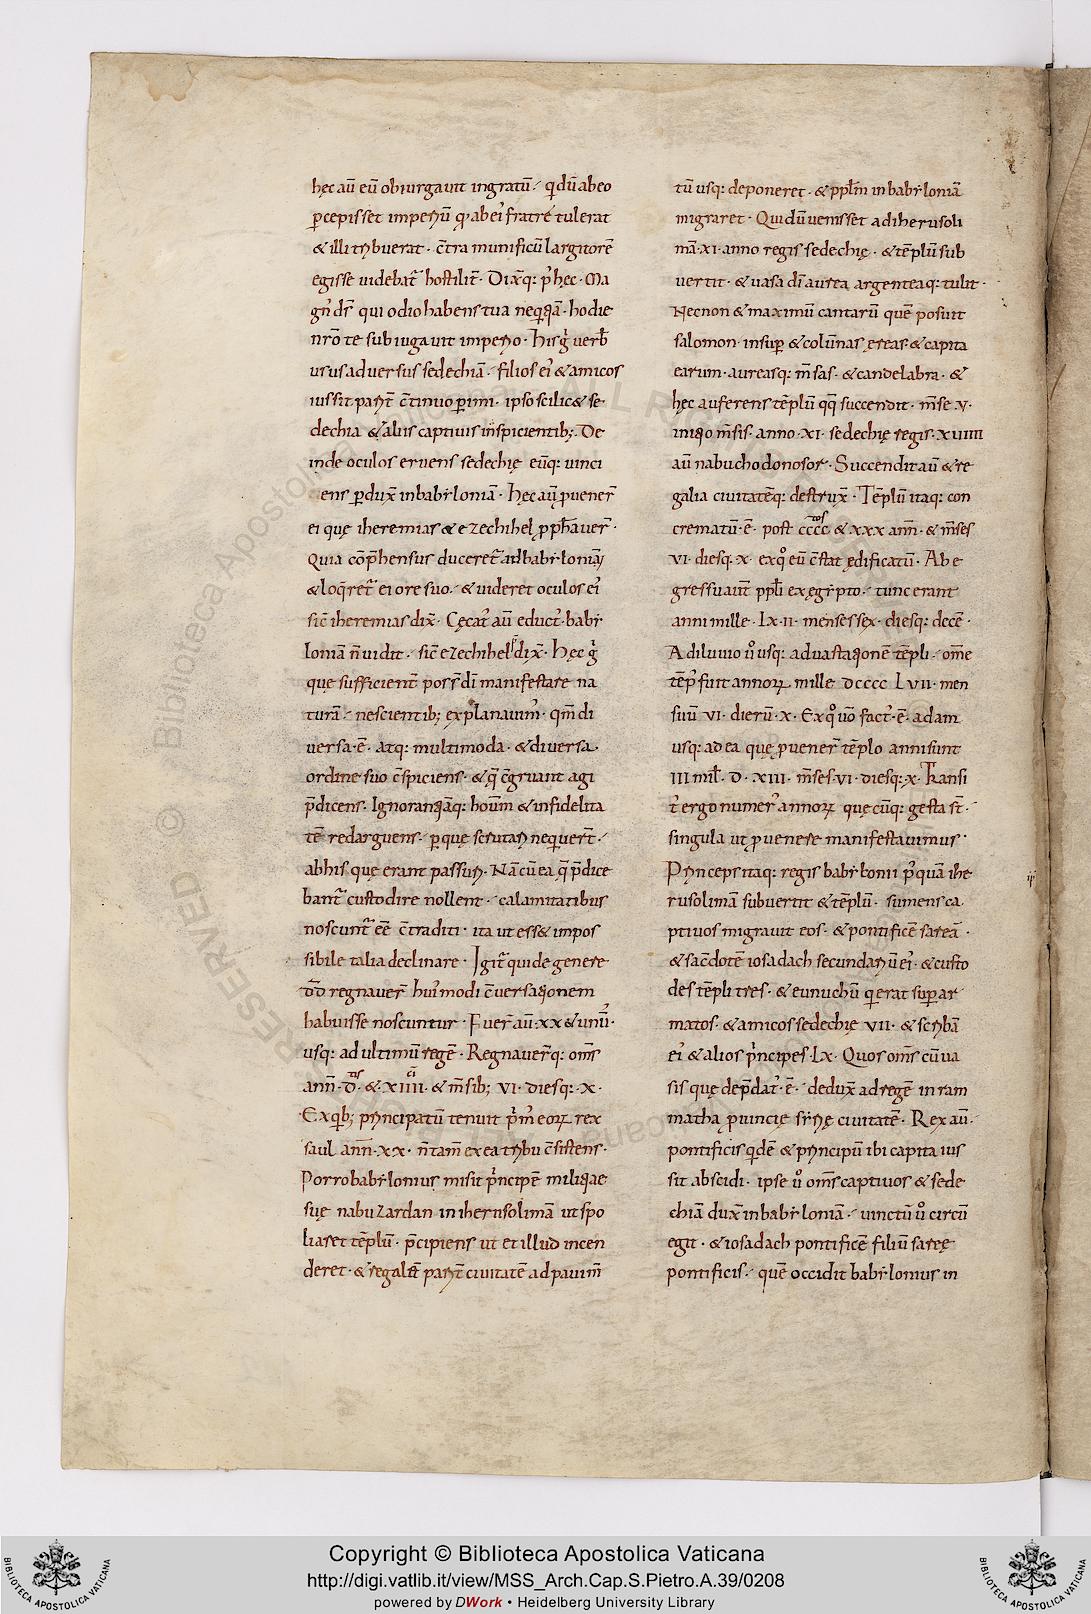 hęc aū eū obiurgauit ingratū· qđ dū abeo
ꝑcepisset imperiū q̣ abei' fratrē tulerat
& illi tribuerat· c̄tra munificū largitorē
egisse uidebat᷒ hostilit̄· Dix̄q: p' hęc· Ma
gn' ds̄ qui odio habens tua neq̇q̇ā· hodie
nr̄o te subiugauit imperio· His g̊ uerb̄
usus aduersus sedechiā· filios ei' & amicos
iussit parit̄ c̄tinuo ꝑimi· ipso scilic& se
dechia & aliis captiuis īspicientib;· De
inde oculos eruens sedechię eūq: uinci
ens ꝑdux̄ in babiloniā· Hęc aū ꝓuener̄
ei quę iheremias & ezechihel ꝓph̄auer̄·
Quia cōp̄hensus duceret᷒ ad babiloniā
& loq̄ret᷒ ei ore suo· & uideret oculos ei'
sic̄ iheremias dix̄· Cęcat' aū educt' babi
loniā n̄ uidit· sic̄ ezechihel p̄dix̄· Hęc g̊
quę sufficient̄ poss̄ dī manifestare na
turā· nescientib; explanauim'· qm̄ di
uersa ·ē· atq: multimoda· & diuersa·
ordine suo c̄spiciens· & q̨ c̄gruant agi
p̄dicens· Ignorantiāq: houm̄ & infidelita
tē redarguens· ꝑ quę scrutari nequer̄t·
ab his quę erant passuri· Nā cū ea q̨ p̄dice
bant᷒ custodire nollent· calamitatibus
noscunt᷒ eē c̄traditi· ita ut ess& impos
sibile talia declinare· Igit᷒ qui de genere
d̄d regnauer̄ hui'modi c̄uersationem
habuisse noscuntur· Fuer̄ aū ·xx· & unū·
usq: ad ultimū regē· Regnauer̄q: om̄s
ann̄· D̄· & ·xiiii· & m̄sib; VI· diesq: ·x·
Ex qb; principatū tenuit p̊m' eoꝝ rex
saul ann̄· xx· n̄ tam̄ ex ea tribu c̄sistens·
Porro babilonius misit p̊ncipē militiae
suę nabuzardan in iherusolimā ut spo
liaret tēplū· p̄cipiens ut et illud incen
deret· & regalē parit̄ ciuitatē ad pauim̄
tū usq: deponeret· & ppl̄m in babiloniā
migraret· Qui dū uenisset ad iherusoli
mā· XI· anno regis sedechię· & tēplū sub
uertit· & uasa dī aurea argenteaq: tulit·
Necnon & maximū cantarū quē posuit
salomon· insuꝑ & colūnas ęreas· & capita
earum· aureasq: m̄sas· & candelabra· &
hęc auferens tēplū qq̄ succendit· m̄se ·V·
initio m̄sis· anno ·XI· sedechię regis· XVIIII
aū nabuchodonosor· Succendit aū & re
galia ciuitatēq: destrux̄· Tēplū itaq: con
crematū ·ē· post cccc̄ & xxx ann̄· & m̄ses
VI· diesq: ·x· exq̊ eū c̄stat ędificatū· Ab e
gressu aūt ppl̄i ex ęgipto· tunc erant
anni mille· Lx·II· menses sex· diesq: decē·
A diluuio ů usq: ad uastationē tēpli· om̄e
tēp' fuit annoꝝ mille dcccc LVII· men
siū VI· dierū ·x· Ex q̊ ůo fact' ·ē· adam
usq: ad ea quę ꝓuener̄ tēplo anni sunt
III mil̄· D· XIII· m̄ses· VI· diesq: ·x· Transi
t' ergo numer' annoꝝ quę cūq: gesta st̄·
singula ut ꝓuenere manifestauimus·
Princeps itaq: regis babilonii p'quā ihe
rusolimā subuertit & tēplū· sumens ca
ptiuos migrauit eos· & pontificē sareā·
& sac̄dotē iosadach secundariū ei'· & custo
des tēpli tres· & eunuchū qi erat suꝑ ar
matos· & amicos sedechię VII· & scribā
ei' & alios p̊ncipes· Lx· Quos om̄s cū ua
sis quę dep̄dat' ·ē· dedux̄ ad regē in ram
matha ꝓuincię sirię ciuitatē· Rex aū·
pontificis qidē & principū ibi capita ius
sit abscidi· ipse ů om̄s captiuos & sede
chiā dux̄ in babiloniā· uinctū ů circū
egit· & iosadach pontificē filiū sareę
pontificis· quē occidit babilonius in
Copyright © Biblioteca Apostolica Vaticana
http://digi.vatlib.it/view/MSS_Arch.Cap.S.Pietro.A.39/0208
powered by DWork • Heidelberg University Library